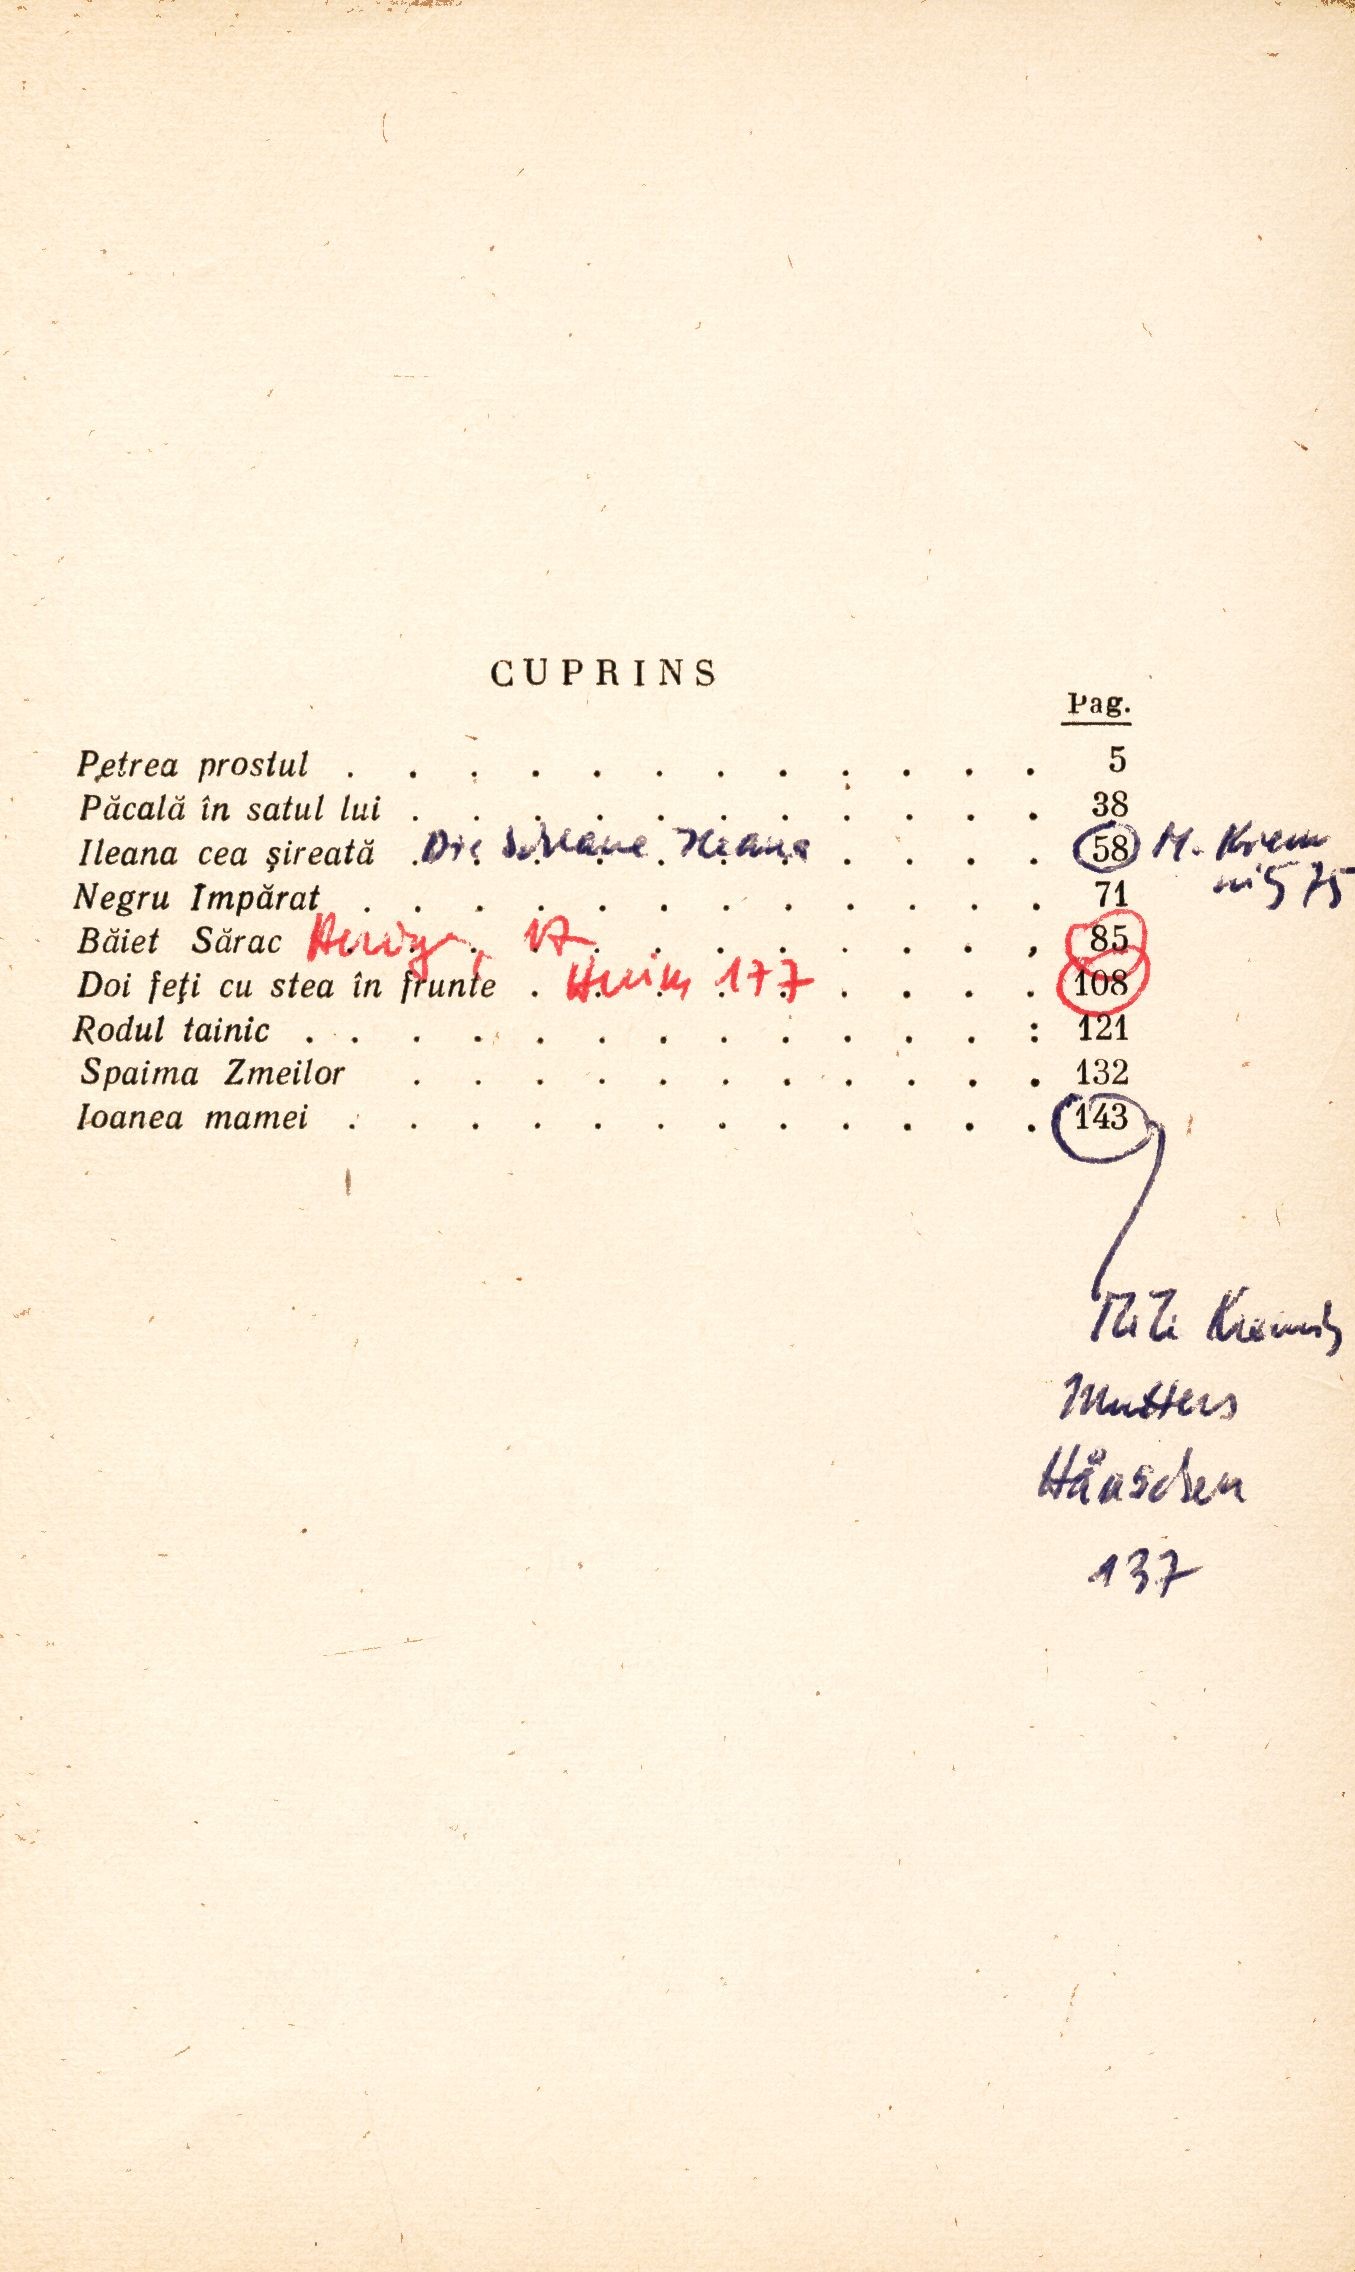 CUPRINS
Pag.
Petrea prostul . . . . . . . . . . . . 5
Păcală în satul lui . . . . . . . . . . . 38
Ileana cea şireată Die schlaue Ileana . . . . 58 M. Krem
nitz 75
Negru Împărat . . . . . . . . . . . . 71
Băiet Sărac 17 . . . . . . . , 85
Doi feţi cu stea în frunte . 177 . . . . 108
Rodul tainic . . . . . . . . . . . . : 121
Spaima Zmeilor . . . . . . . . . . . 132
Ioanea mamei . . . . . . . . . . . . 143
Mite Kremnitz
Mutters
Hänschen
137